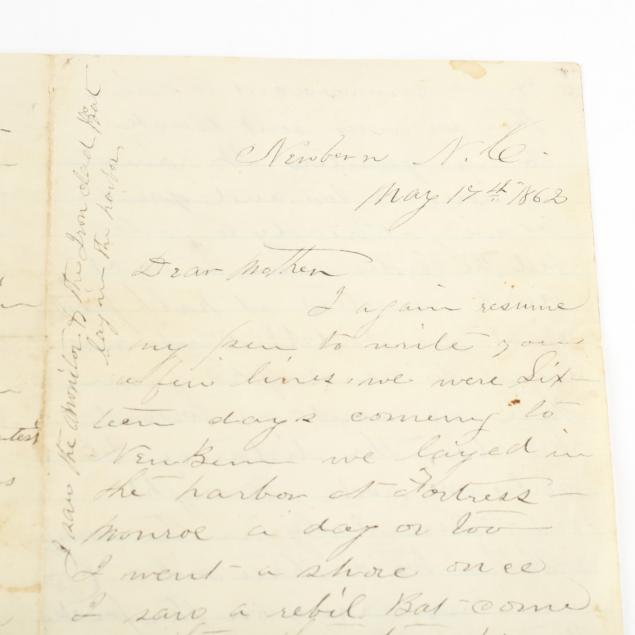 Newbern N.C.
May 17th 1862
Dear Mother
I again resume
my pen to write you
a few lines we were Six-
teen days comeing to
NewBern we layed in
the harbor at Fortress-
Monroe a day or too
I went a shore once
I saw a rebil Bat come
I saw the Monitor & the Iron clad that
lay in the harbor